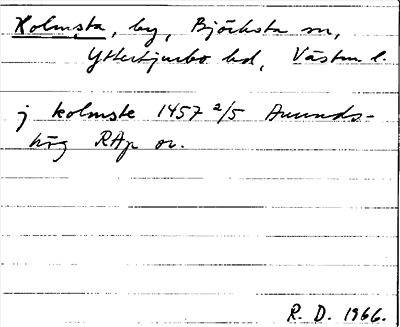 Holmsta, by, Björksta sn,
Yttertjurbo hd, Västm l.
j kolmste 1457 2/5 Anunds-
hög RAp or.
R. D. 1966.